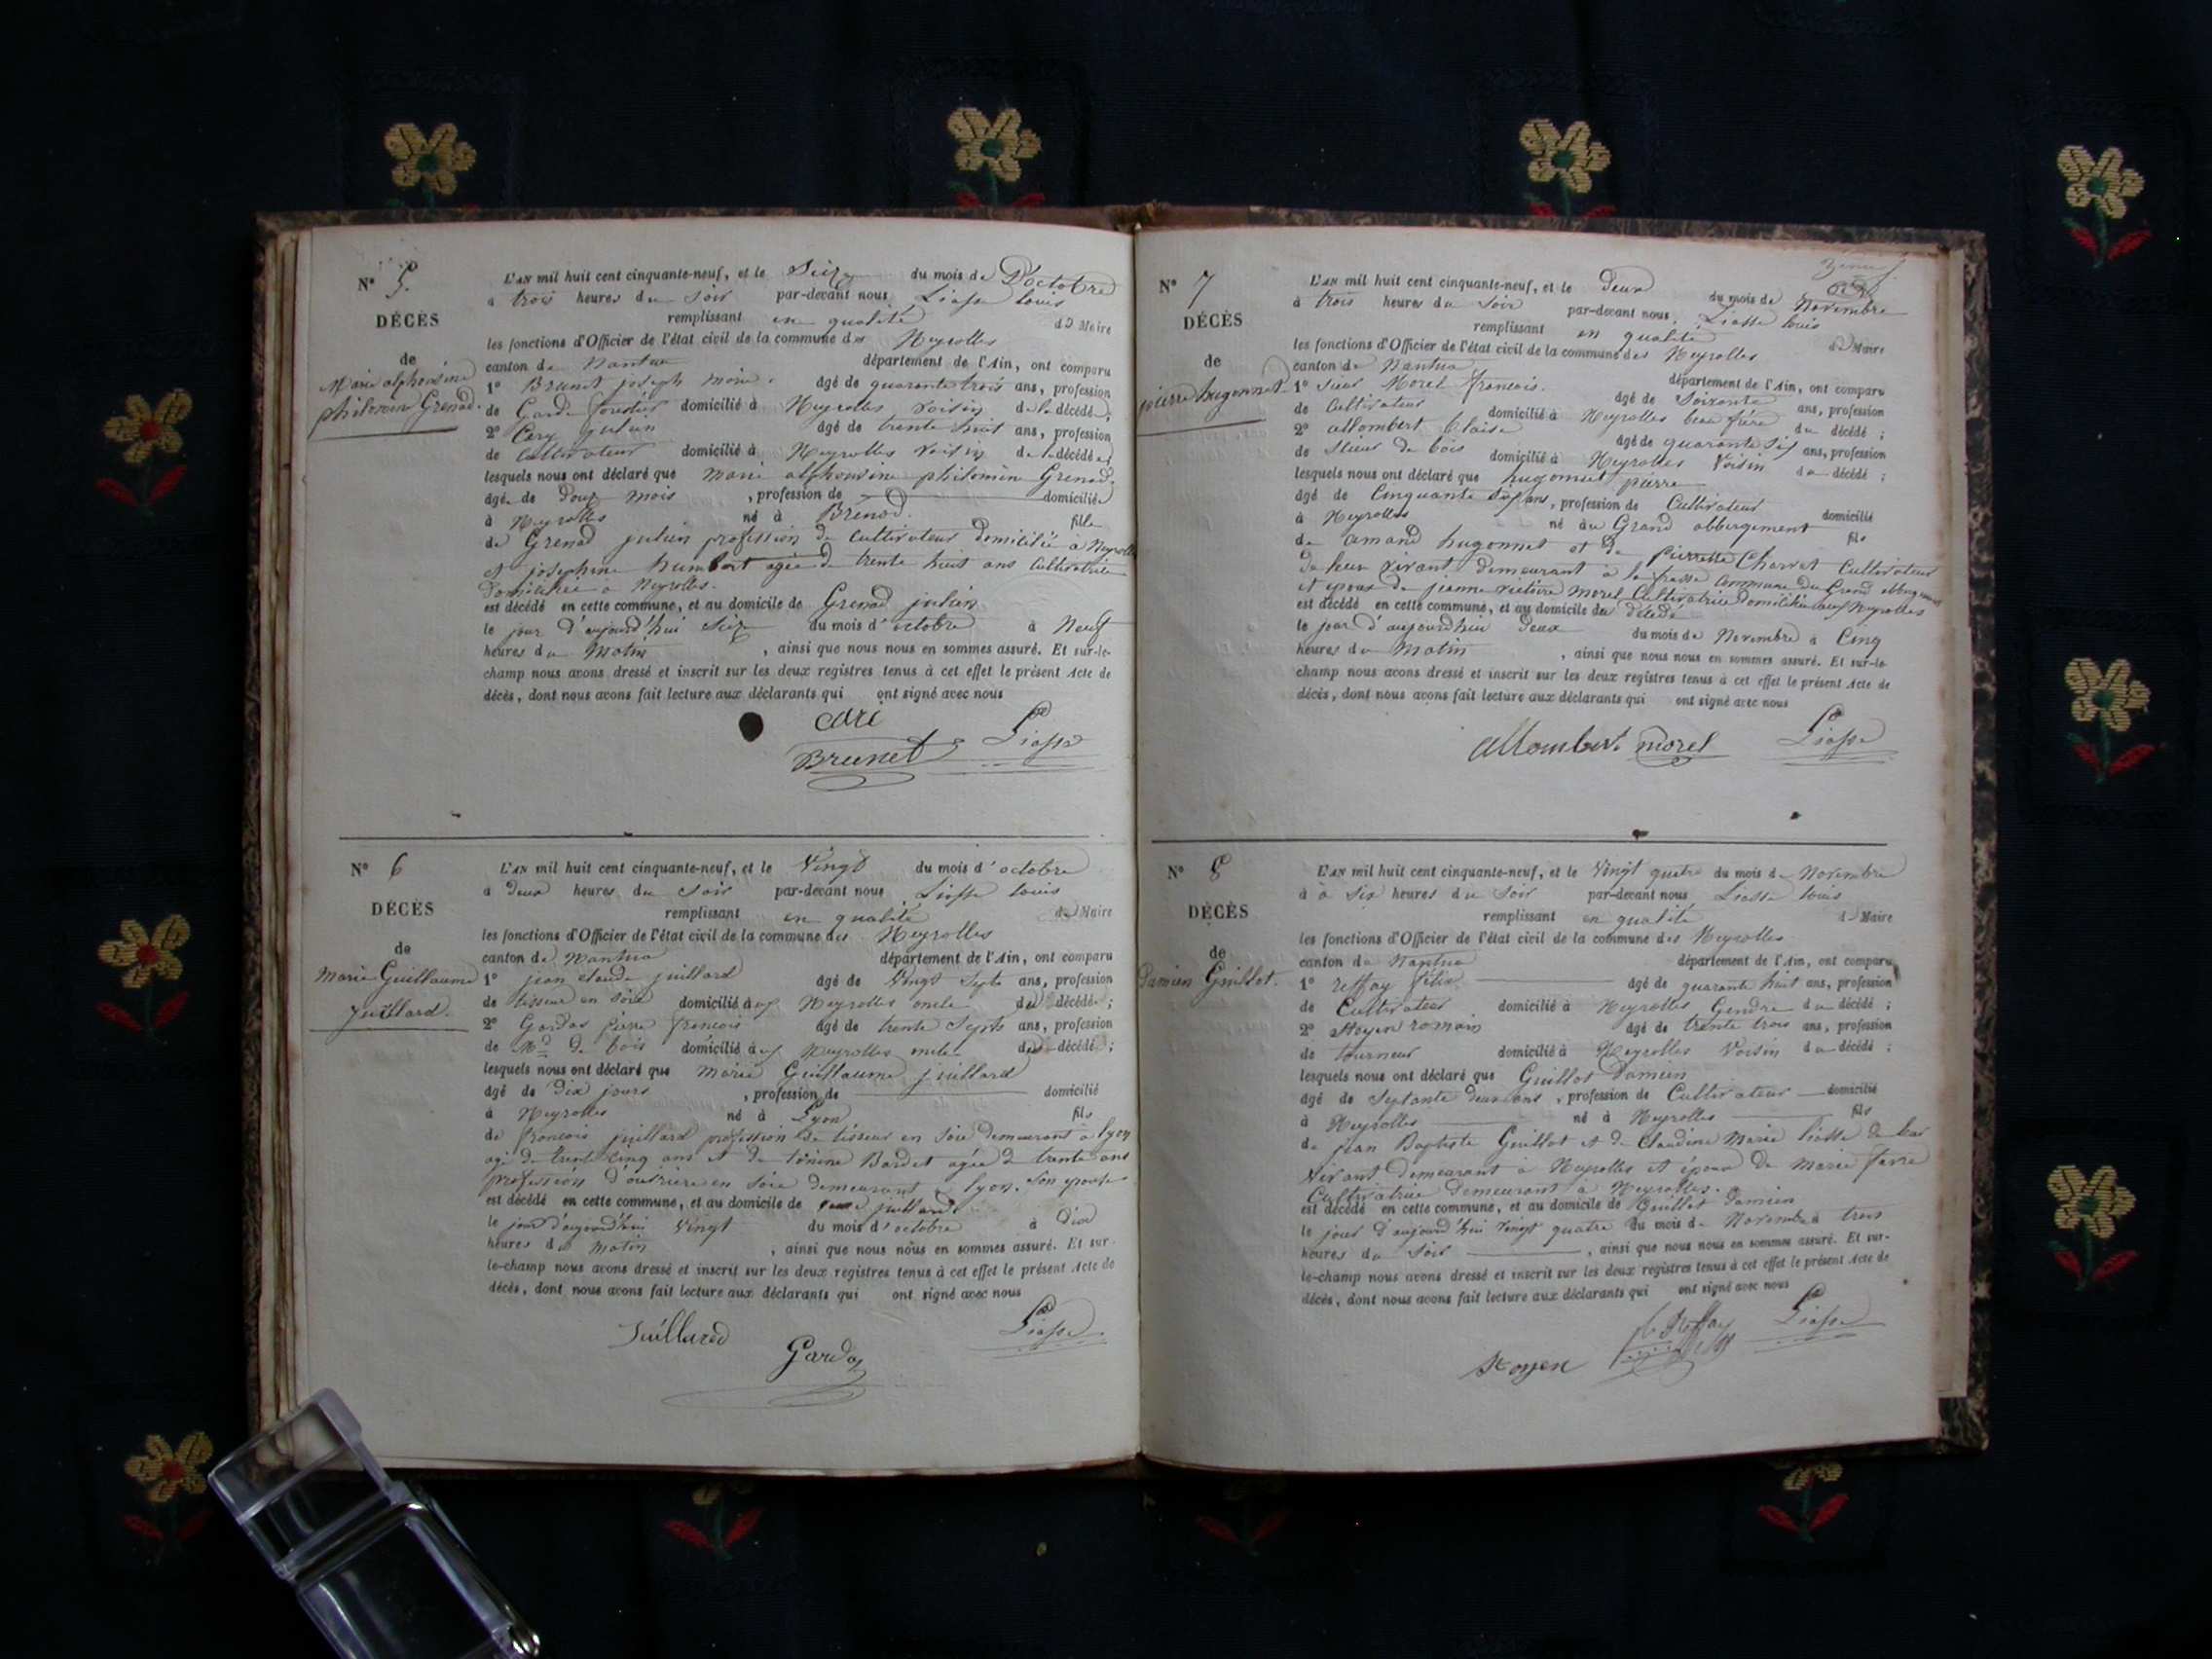 N° 5.
DÉCÈS
de
Marie alphonsine
philomine Grenod.
L'AN mil huit cent cinquante-neuf, et le Seize du mois de D'octobre
à trois heures du Soir par-devant nous Liasse louis
remplissant en qualité de Maire
les fonctions d'Officier de l'état civil de la commune des Neyrolles
canton de Nantua département de l'Ain, ont comparu
1° Brunet joseph marie âgé de quarante trois ans, profession
de Garde forestier domicilié à Neyrolles voisin de la décédée;
2° Cary julien âgé de trente huit ans, profession
de Cultivateur domicilié à Neyrolles Voisin de la décédée;
lesquels nous ont déclaré que Marie alphonsine philomine Grenod
âgée de Douze mois , profession de domiciliée
à Neyrolles né à Brénod. fille
de Grenod julien profession de Cultivateur domicilié à Neyrolles
et josephine humbert agée de trente huit ans Cultivatrice
domiciliée à Neyrolles.
est décédé en cette commune, et au domicile de Grenod julien
le jour d'aujourd'hui Seize du mois d'octobre à Neuf
heures du Matin , ainsi que nous nous en sommes assuré. Et sur-le-
champ nous avons dressé et inscrit sur les deux registres tenus à cet effet le présent Acte de
décès, dont nous avons fait lecture aux déclarants qui ont signé avec nous
Brunet Liasse
N° 6
DÉCÈS
de
Marie Guillaume
Juillard.
L'AN mil huit cent cinquante-neuf, et le Vingt du mois d'octobre
à deux heures du Soir par-devant nous Liasse louis
remplissant en qualité de Maire
les fonctions d'Officier de l'état civil de la commune des Neyrolles
canton de Nantua département de l'Ain, ont comparu
1° jean claude juillard âgé de Vingt Septe ans, profession
de tisseur en soie domicilié aux Neyrolles oncle du décédé;
2° Gardas pierre francois âgé de trente Septe ans, profession
de Md de bois domicilié aux Neyrolles oncle du décédé;
lesquels nous ont déclaré que Marie Guillaume juillard
âgé de dix jours , profession de domicilié
à Neyrolles né à Lyon fils
de francois juillard profession de tisseur en soie demeurant à lyon
agé de trente cinq ans et de Bardet agée de trente ans
profession d'ouvrière en soie demeurant à lyon. Son epouse
est décédé en cette commune, et au domicile de juillard
le jour d'aujourd'hui Vingt du mois d'octobre à dix
heures du Matin , ainsi que nous nous en sommes assuré. Et sur-
le-champ nous avons dressé et inscrit sur les deux registres tenus à cet effet le présent Acte de
décès, dont nous avons fait lecture aux déclarants qui ont signé avec nous
Juillard Gardas Liasse
N° 7
DÉCÈS
de
pierre hugonnet
L'AN mil huit cent cinquante-neuf, et le Deux du mois de Novembre
à trois heures du Soir par-devant nous Liasse louis
remplissant en qualité de Maire
les fonctions d'Officier de l'état civil de la commune des Neyrolles
canton de Nantua département de l'Ain, ont comparu
1° Sieur Morel francois. âgé de Soixante ans, profession
de Cultivateur domicilié à Neyrolles beau frère du décédé;
2° allombert blaise âgé de quarante Six ans, profession
de Sieur de bois domicilié à Neyrolles Voisin du décédé;
lesquels nous ont déclaré que hugonnet pierre
âgé de Cinquante ans, profession de Cultivateur domicilié
à Neyrolles né au Grand abbergement fils
de amand hugonnet et de pierrette Charvet Cultivateur
de leur vivant demeurant à la commune du Grand abbergement
et epoux de jeanne victoire Morel Cultivatrice domiciliée aux Neyrolles
est décédé en cette commune, et au domicile du décédé
le jour d'aujourd'hui Deux du mois de Novembre à Cinq
heures du Matin , ainsi que nous nous en sommes assuré. Et sur-le-
champ nous avons dressé et inscrit sur les deux registres tenus à cet effet le présent Acte de
décès, dont nous avons fait lecture aux déclarants qui ont signé avec nous
allombert morel Liasse
N° 8
DÉCÈS
de
Damien Guillot.
L'AN mil huit cent cinquante-neuf, et le Vingt quatre du mois de Novembre
à à Six heures du Soir par-devant nous Liasse louis
remplissant en qualité de Maire
les fonctions d'Officier de l'état civil de la commune des Neyrolles
canton de Nantua département de l'Ain, ont comparu
1° reffay félix âgé de quarante huit ans, profession
de Cultivateur domicilié à Neyrolles Gendre du décédé;
2° Stoyen romain âgé de trente trois ans, profession
de tourneur domicilié à Neyrolles Voisin du décédé;
lesquels nous ont déclaré que Guillot Damien
âgé de Septante deux ans , profession de Cultivateur domicilié
à Neyrolles né à Neyrolles fils
de jean Baptiste Guillot et de Claudine Marie liasse de leur
vivant demeurant à Neyrolles et époux de Marie favre
Cultivatrice demeurant à Neyrolles.
est décédé en cette commune, et au domicile de Guillot Damien
le jour d'aujourd'hui vingt quatre du mois de Novembre à trois
heures du Soir , ainsi que nous nous en sommes assuré. Et sur-
le-champ nous avons dressé et inscrit sur les deux registres tenus à cet effet le présent Acte de
décès, dont nous avons fait lecture aux déclarants qui ont signé avec nous
Stoyen Reffay Liasse